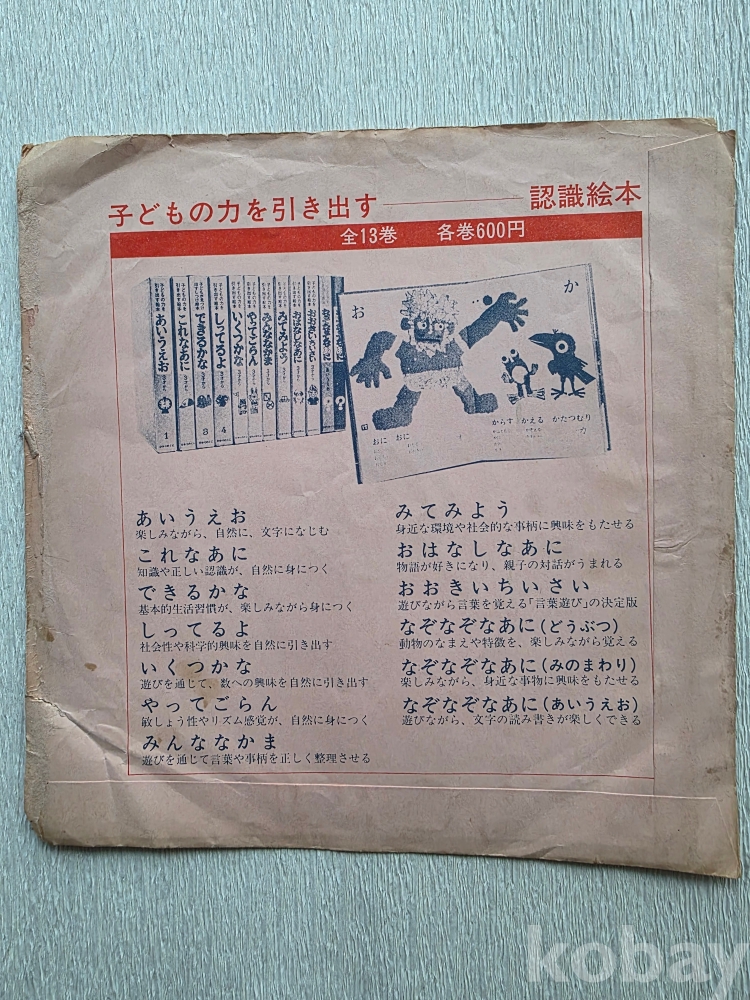 子どもの力を引き出す——認識絵本
全13巻 各巻600円
あいうえお
これなあに
できるかな
しってるよ
いくつかな
やってごらん
みんななかま
みてみよう
おはなしなあに
おおきいちいさい
1
3
4
お
か
おに おに
からす かえる かたつむり
あいうえお
楽しみながら、自然に、文字になじむ
これなあに
知識や正しい認識が、自然に身につく
できるかな
基本的生活習慣が、楽しみながら身につく
しってるよ
社会性や科学的興味を自然に引き出す
いくつかな
遊びを通じて、数への興味を自然に引き出す
やってごらん
敏しょう性やリズム感覚が、自然に身につく
みんななかま
遊びを通じて言葉や事柄を正しく整理させる
みてみよう
身近な環境や社会的な事柄に興味をもたせる
おはなしなあに
物語が好きになり、親子の対話がうまれる
おおきいちいさい
遊びながら言葉を覚える「言葉遊び」の決定版
なぞなぞなあに(どうぶつ)
動物のなまえや特徴を、楽しみながら覚える
なぞなぞなあに(みのまわり)
楽しみながら、身近な事物に興味をもたせる
なぞなぞなあに(あいうえお)
遊びながら、文字の読み書きが楽しくできる
kobay